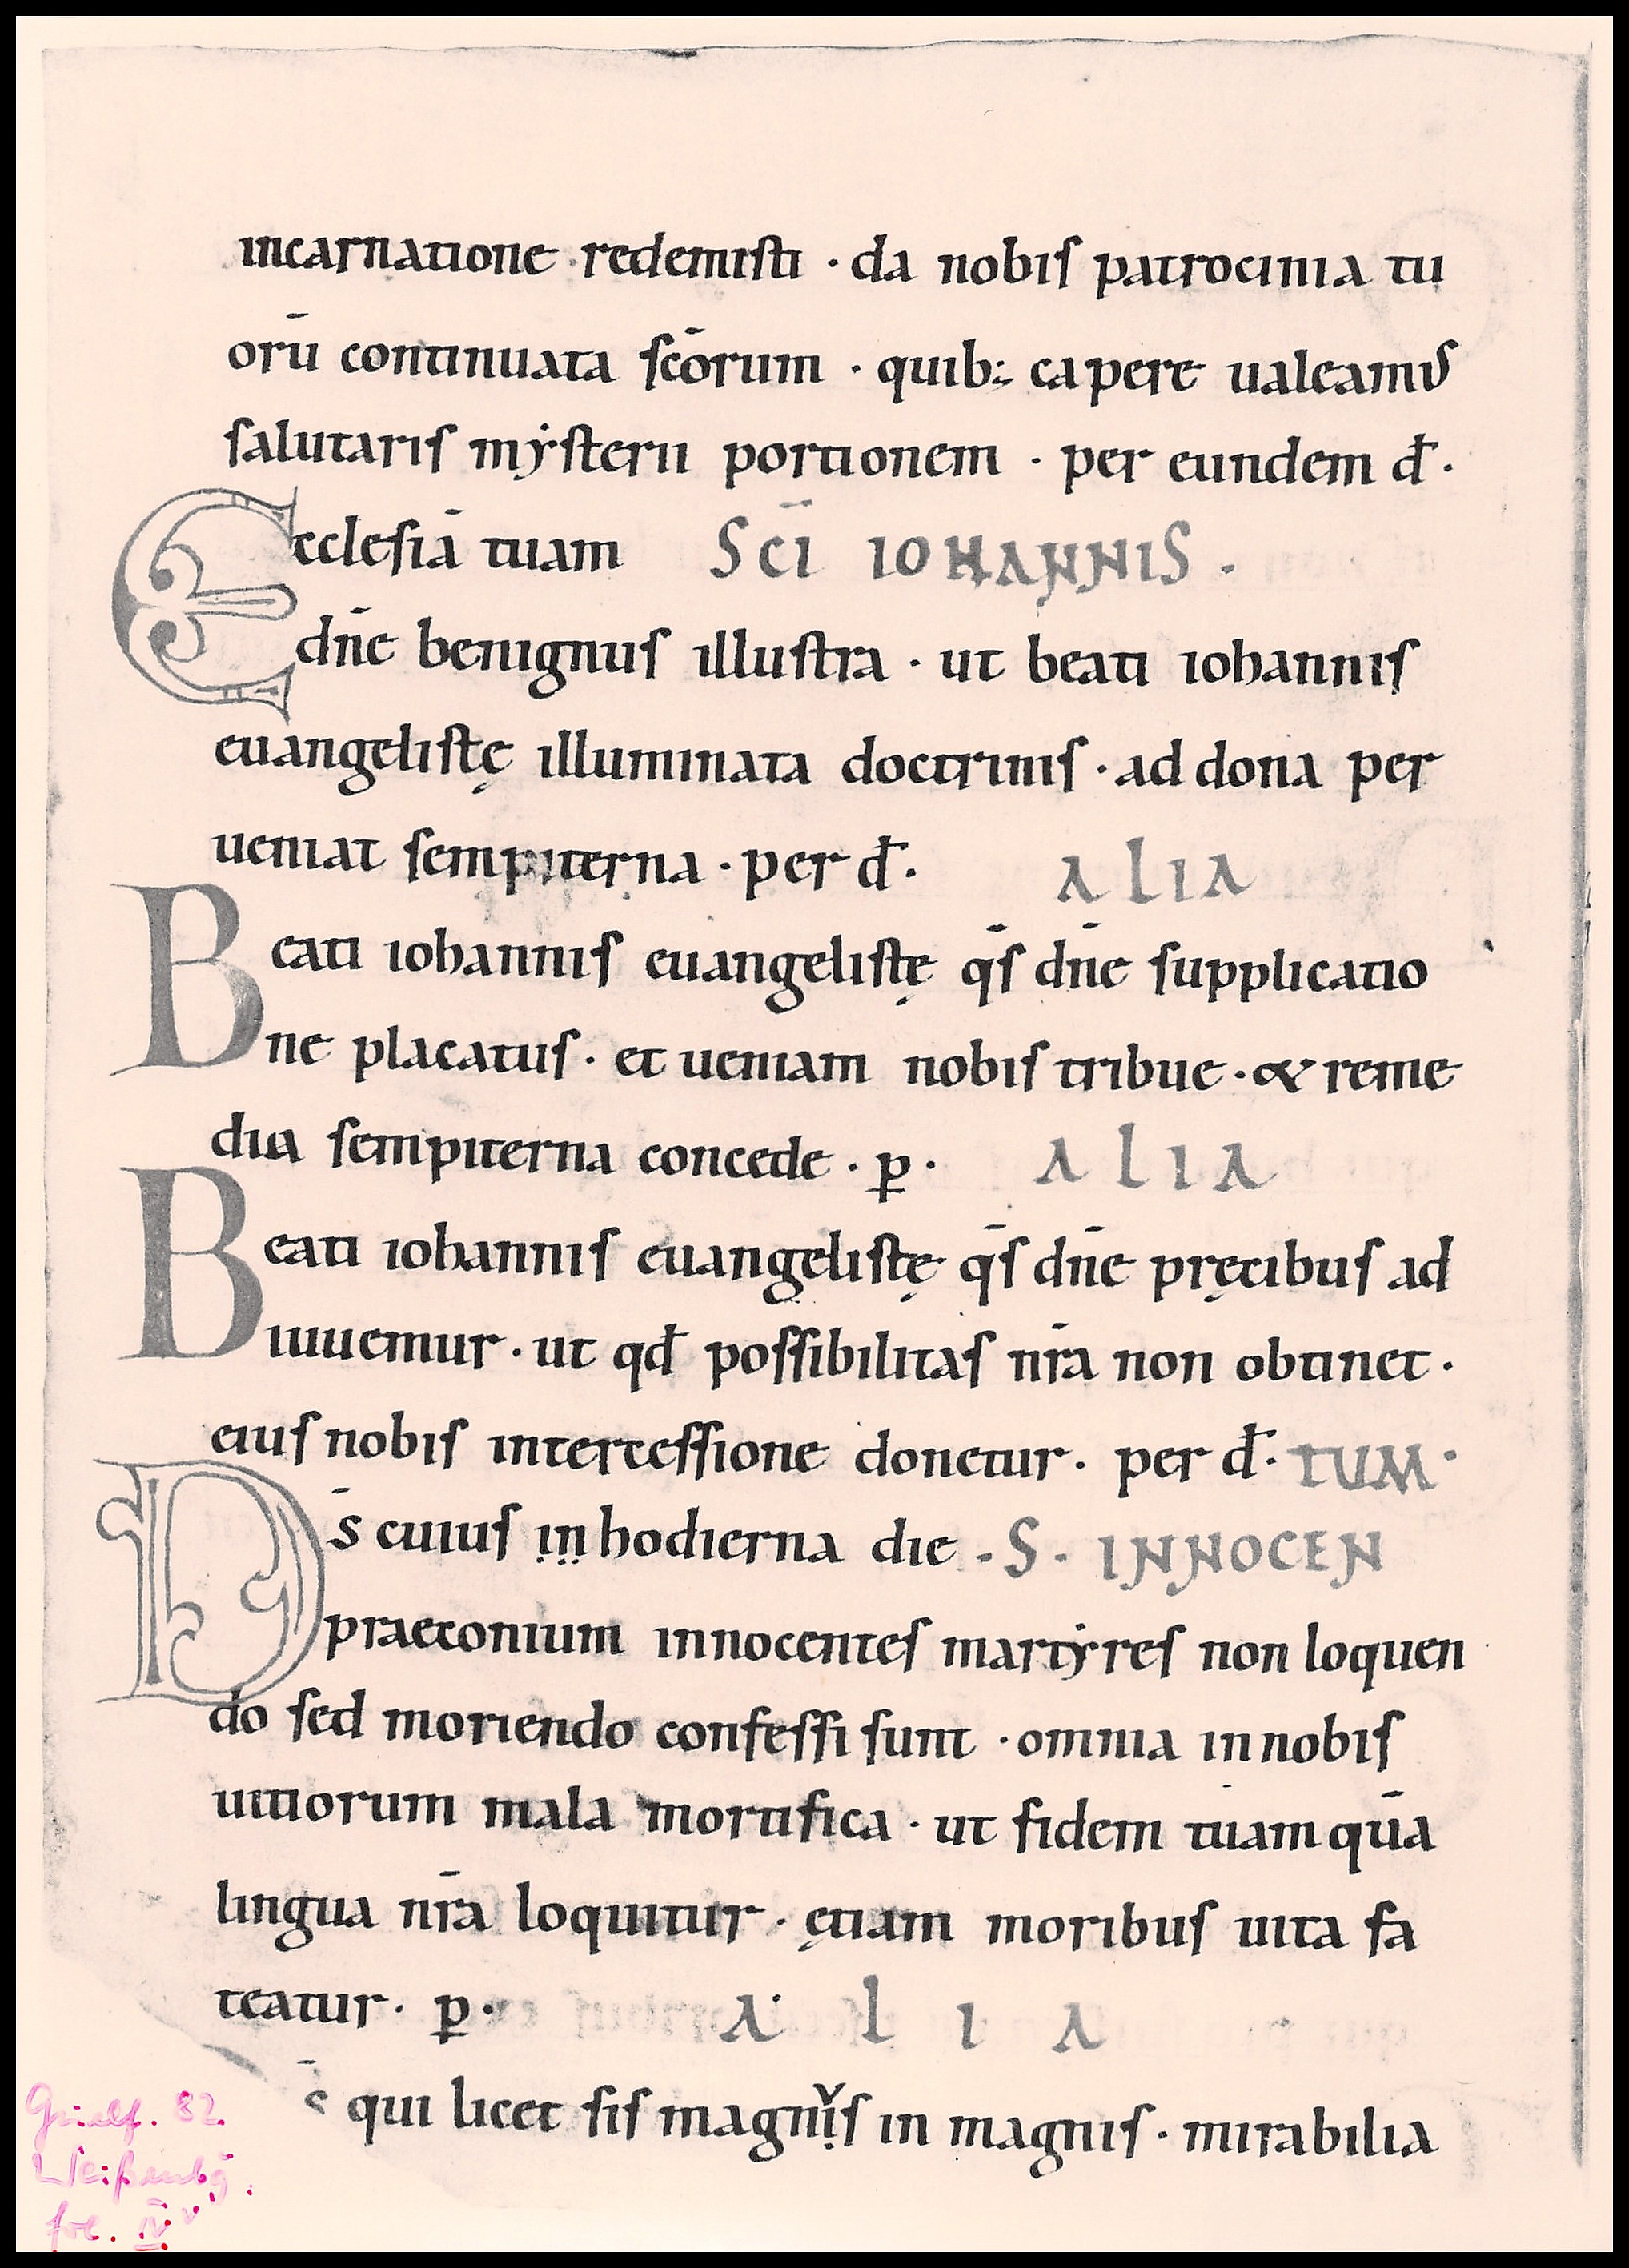 incarnatione redemisti · da nobis patrocinia tu
orū continuata scōrum · quib; capere ualeamus
salutaris mẏsterii portionem · per eundem đ·
Ecclesiā tuam SCĪ IOHANNIS ·
dn̄e benignus illustra · ut beati iohannis
euangelistę illuminata doctrinis · ad dona per
ueniat sempiterna · per đ· ALIA
Beati iohannis euangelistę qs̄ dn̄e supplicatio
ne placatus · et ueniam nobis tribue · & reme
dia sempiterna concede · p̲ · ALIA
Beati iohannis euangelistę qs̄ dn̄e pręcibus ad
iuuemur · ut qđ possibilitas nr̄a non obtinet ·
eius nobis intercessione donetur · per đ· TUM ·
Ds̄ cuius iṇ hodierna die · S · INNOCEN
praeconium innocentes martẏres non loquen
do sed moriendo confessi sunt · omnia in nobis
uitiorum mala mortifica · ut fidem tuam quā
lingua nr̄a loquitur · ętiam moribus uita fa
teatur · p̲ · ALIA
s̄ qui licet sis magnịͮs in magnis · mirabilia
Guelf. 82.
Weißenbg.
fol. IV v